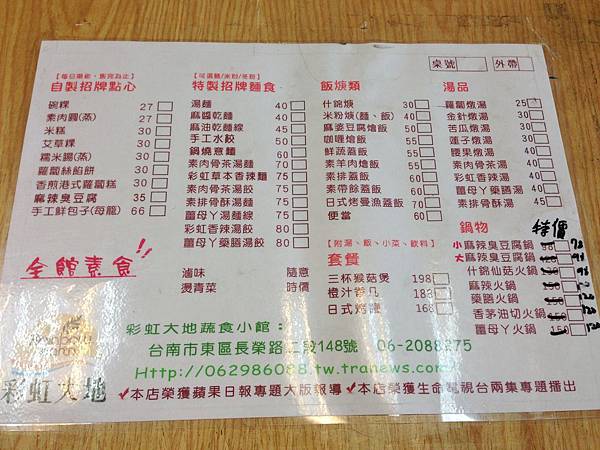 桌號 外帶
【每日限量，售完為止】
自製招牌點心
碗粿 27
素肉圓(蒸) 27
米糕 30
艾草粿 30
糯米腸(蒸) 30
蘿蔔絲餡餅 30
香煎港式蘿蔔糕 30
麻辣臭豆腐 35
手工鮮包子(每籠) 66
全館素食!!
【可選麵/米粉/冬粉】
特製招牌麵食
湯麵 40
麻醬乾麵 40
麻油乾麵線 45
手工水餃 50
鍋燒意麵 60
素肉骨茶湯麵 70
彩虹草本香辣麵 70
素肉骨茶湯餃 70
素排骨酥湯麵 75
薑母丫湯麵線 75
彩虹香辣湯餃 80
薑母丫藥膳湯餃 80
滷味 隨意
燙青菜 時價
飯焿類
什錦焿 30
米粉焿(麵、飯) 40
麻婆豆腐燴飯 50
咖哩燴飯 50
鮮蔬蓋飯 50
素羊肉燴飯 60
素排蓋飯 60
素帶餘蓋飯 60
日式烤曼漁蓋飯 70
便當 60
【附湯、飯、小菜、飲料】
套餐
三杯猴菇煲 198
橙汁 188
日式烤 168
湯品
蘿蔔燉湯 25
金針燉湯 30
苦瓜燉湯 30
蓮子燉湯 30
腰果燉湯 40
素肉骨茶湯 40
彩虹香辣湯 40
薑母丫藥膳湯 50
素排骨酥湯 50
鍋物 特價
小麻辣臭豆腐鍋
大麻辣臭豆腐鍋
什錦仙菇火鍋
麻辣火鍋
藥膳火鍋
香茅油切火鍋
薑母丫火鍋
彩虹大地蔬食小館：
台南市東區長榮路二段148號 06-2088275
Http://062986088.tw.tranews.com/
彩虹大地
✓本店榮獲蘋果日報專題大版報導 ✓本店榮獲生命電視台兩集專題播出